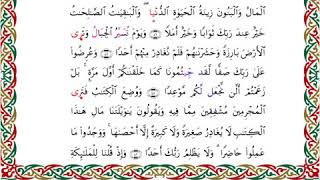 ٱلْمَالُ وَٱلْبَنُونَ زِينَةُ ٱلْحَيَوٰةِ ٱلدُّنْيَا ۖ وَٱلْبَٰقِيَٰتُ ٱلصَّٰلِحَٰتُ
خَيْرٌ عِندَ رَبِّكَ ثَوَابًا وَخَيْرٌ أَمَلًا ۝ وَيَوْمَ نُسَيِّرُ ٱلْجِبَالَ وَتَرَى
ٱلْأَرْضَ بَارِزَةً وَحَشَرْنَٰهُمْ فَلَمْ نُغَادِرْ مِنْهُمْ أَحَدًا ۝ وَعُرِضُوا۟
عَلَىٰ رَبِّكَ صَفًّا لَّقَدْ جِئْتُمُونَا كَمَا خَلَقْنَٰكُمْ أَوَّلَ مَرَّةٍۭ ۚ بَلْ
زَعَمْتُمْ أَلَّن نَّجْعَلَ لَكُم مَّوْعِدًا ۝ وَوُضِعَ ٱلْكِتَٰبُ فَتَرَى
ٱلْمُجْرِمِينَ مُشْفِقِينَ مِمَّا فِيهِ وَيَقُولُونَ يَٰوَيْلَتَنَا مَالِ هَٰذَا
ٱلْكِتَٰبِ لَا يُغَادِرُ صَغِيرَةً وَلَا كَبِيرَةً إِلَّآ أَحْصَىٰهَا ۚ وَوَجَدُوا۟ مَا
عَمِلُوا۟ حَاضِرًا ۗ وَلَا يَظْلِمُ رَبُّكَ أَحَدًا ۝ وَإِذْ قُلْنَا لِلْمَلَٰٓئِكَةِ